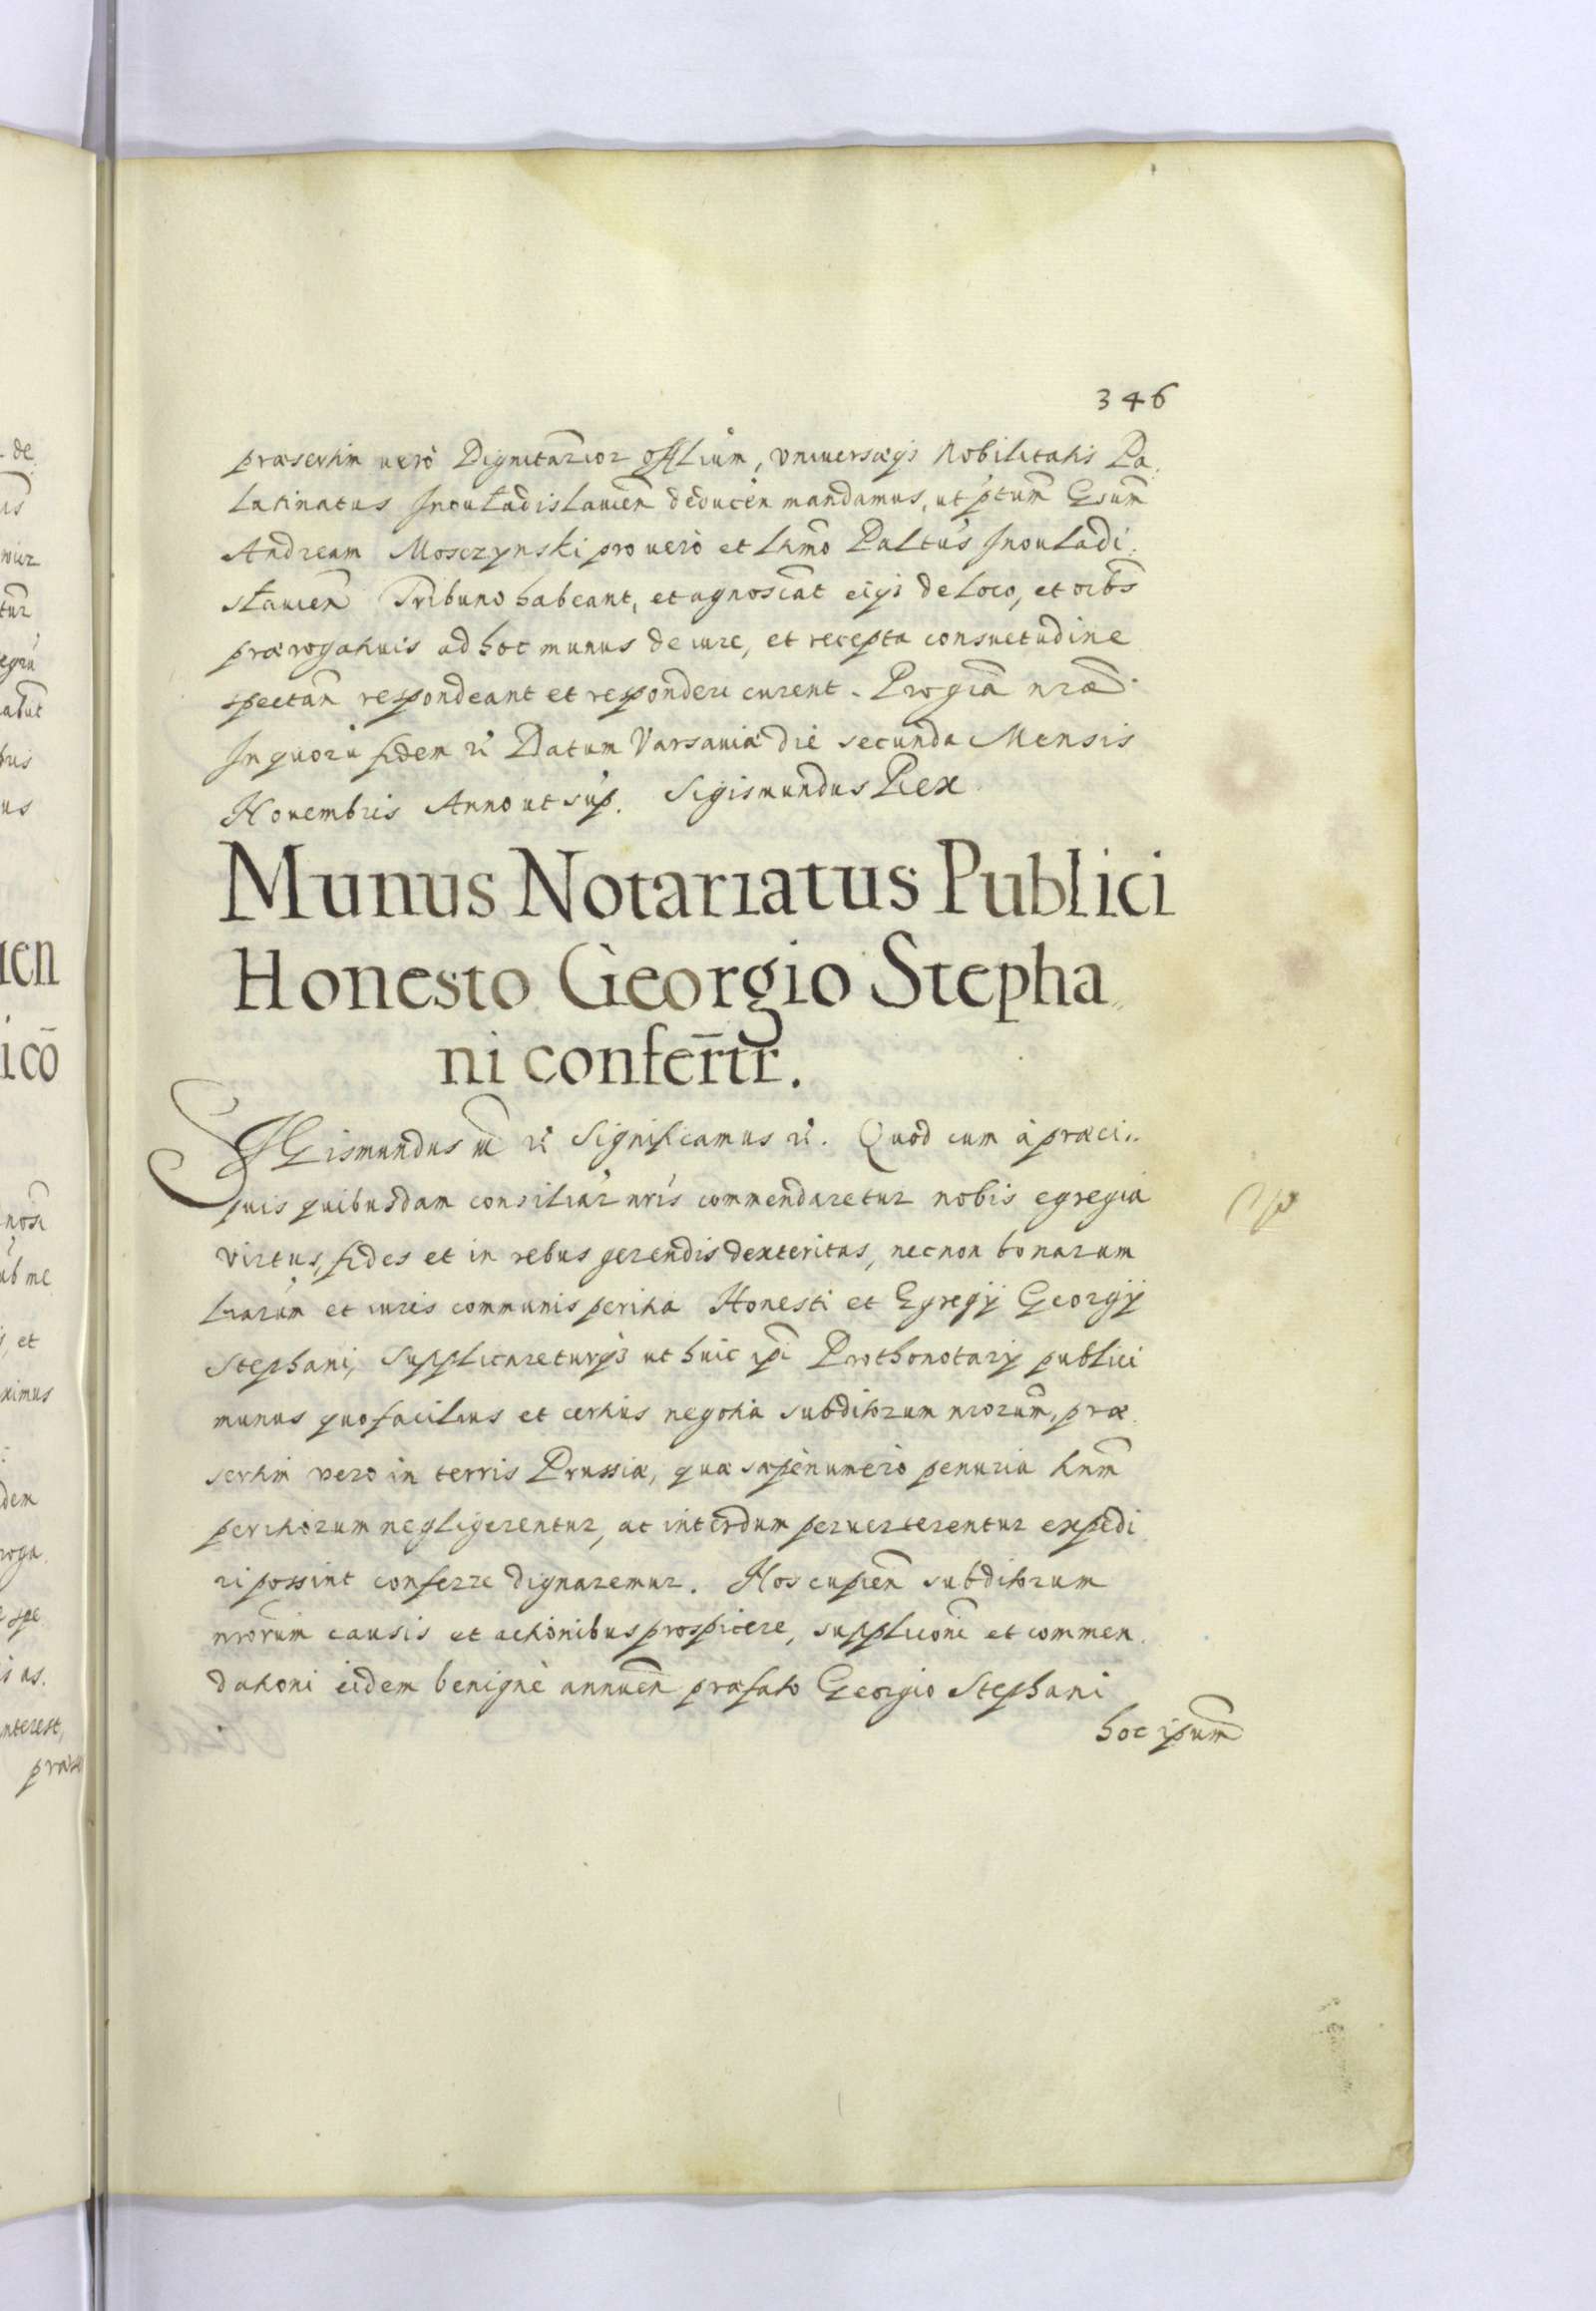 346
præsertim verò Dignitarior offlium, vniversæqз Nobilitatis Pa
latinatus Inouładislauien deducen mandamus, ut ptum Gsum
Andream Mosczynski pro vero et lttmo Paltus Inouladi
słauien Tribuno habeant, et agnoscāt eiqз de loco, et oībs
prærogatiuis ad hoc munus de iure, et recepta consuetudine
spectan respondeant et responderi curent. Pro grā nrā.
In quorū fidem zc Datum Varsauiæ die secunda Mensis
Nouembris Anno ut sup. Sigismundus Rex.
Munus Notariatus Publici
Honesto Georgio Stepha
ni confertr.
SIGismundus zc Significamus zc. Quod cum à præci..
puis quibusdam consiliar nris commendaretur nobis egregia
virtus, fides et in rebus gerendis dexteritas, necnon bonarum
lrarum et iuris communis peritia Honesti et Egregÿ Georgÿ
Stephani, Supplicareturqз ut huic ipi Prothonotarÿ publici
munus quo facilius et certius negotia subditorum nrorum, præ
sertim vero in terris Prussiæ, quæ sæpenumero penuria hnm
peritorum negligerentur, ac interdum peruerterentur expedi
ri possint conferre dignaremur. Nos cupien subditorum
nrorum causis et actionibus prospicere, supplicōni et commen
dationi eidem benignè annuen præfato Georgio Stephani
hoc ipsum